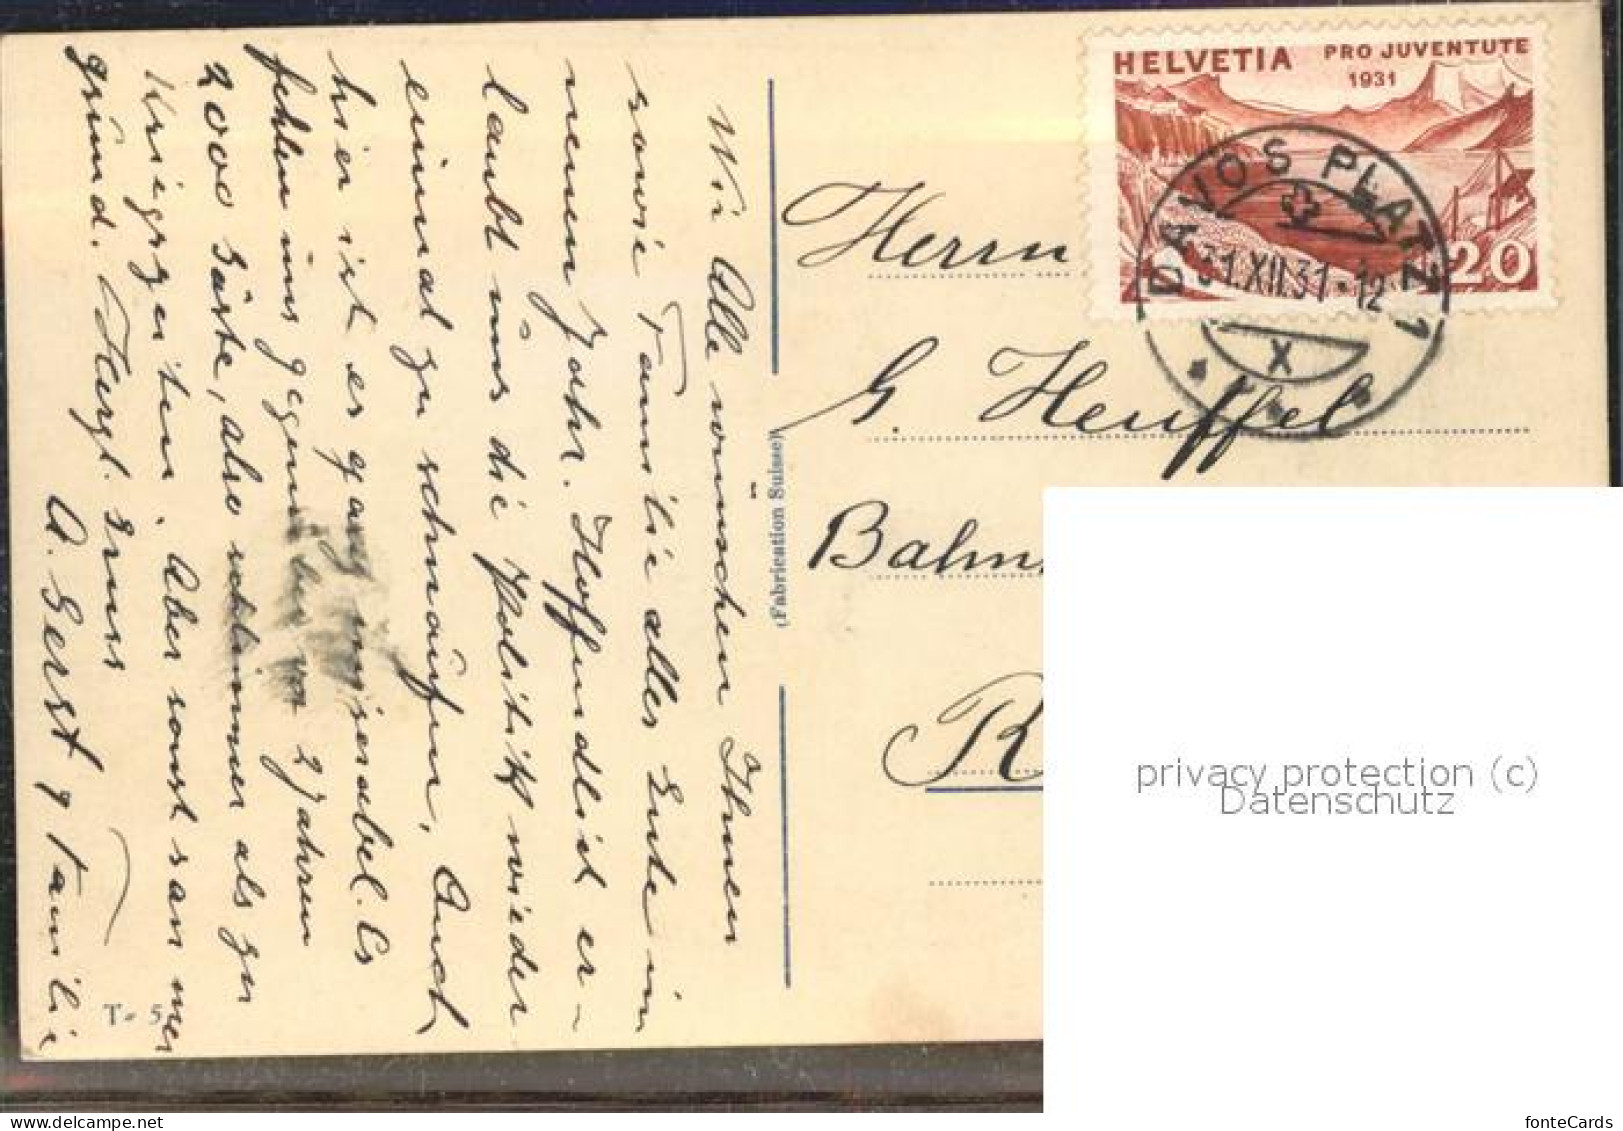 Wir Alle wünschen Ihnen
sowie Familie alles Gute im
neuen Jahr. Hoffendlich er-
laubt uns die Politik wieder
einmal zu schnaufen. Auch
hier ist es ganz miserabel. Es
fehlen uns gegenüber vor 2 Jahren
2000 Gäste, also schlimmer als zur
Kriegszeiten. Aber sonst san mer
gsund. Herzl. Gruss
A. Gerst & Familie
T. 5
(Fabrication Suisse)
HELVETIA PRO JUVENTUTE
1931
20
DAVOS PLATZ 1
31.XII.31-12
X
Herrn
G. Heuffel
privacy protection (c)
Datenschutz
www.delcampe.net
fonteCards